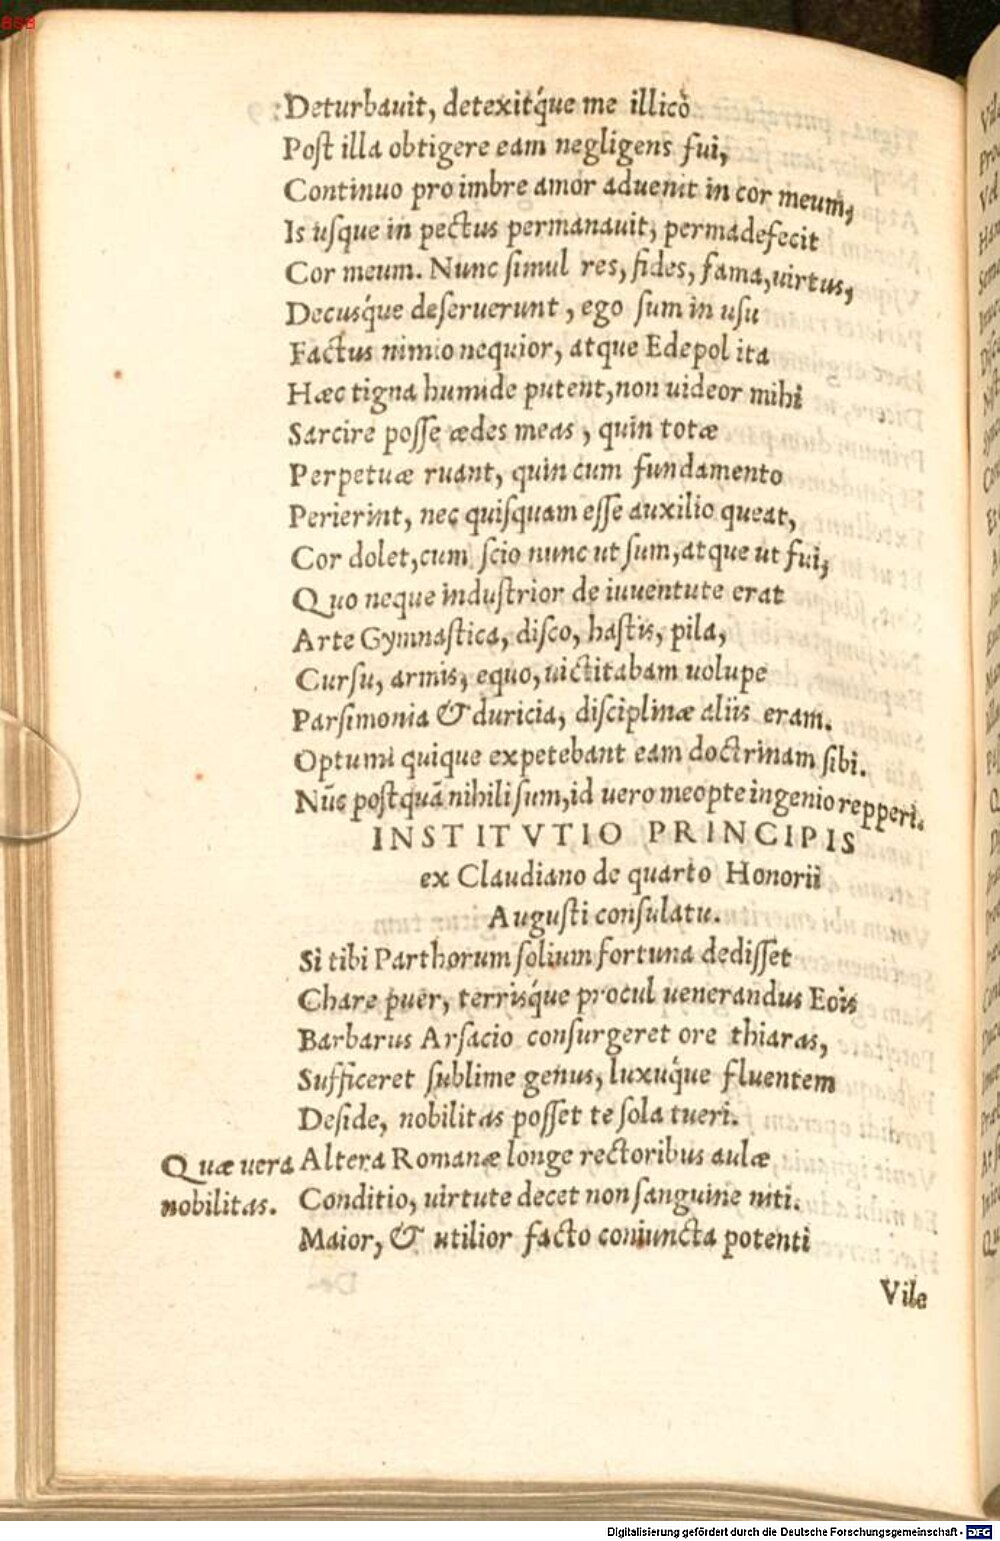 858
Deturbauit, detexitq́ue me illicò
Poſt illa obtigere eam negligens fui,
Continuo pro imbre amor aduenit in cor meum,
Is uſque in pectus permanauit, permadefecit
Cor meum. Nunc ſimul res, fides, fama, uirtus,
Decusq́ue deſeruerunt, ego ſum in uſu
Factus nimio nequior, atque Edepol ita
Hæc tigna humide putent, non uideor mihi
Sarcire poſſe ædes meas, quin totæ
Perpetuæ ruant, quin cum fundamento
Perierint, nec quiſquam eſſe auxilio queat,
Cor dolet, cum ſcio nunc ut ſum, atque ut fui,
Quo neque induſtrior de iuuentute erat
Arte Gymnaſtica, diſco, haſtis, pila,
Curſu, armis, equo, uictitabam uolupe
Parſimonia & duricia, diſciplinæ aliis eram.
Optumi quique expetebant eam doctrinam ſibi.
Nūc poſtquā nihili ſum, id uero meopte ingenio repperi.
INSTITVTIO PRINCIPIS
ex Claudiano de quarto Honorii
Auguſti conſulatu.
Si tibi Parthorum ſolium fortuna dediſſet
Chare puer, terrisq́ue procul uenerandus Eois
Barbarus Arſacio conſurgeret ore thiaras,
Sufficeret ſublime genus, luxuq́ue fluentem
Deſide, nobilitas poſſet te ſola tueri.
Quæ uera Altera Romanæ longe rectoribus aulæ
nobilitas. Conditio, uirtute decet non ſanguine niti.
Maior, & utilior facto coniuncta potenti
Vile
Digitalisierung gefördert durch die Deutsche Forschungsgemeinschaft - DFG